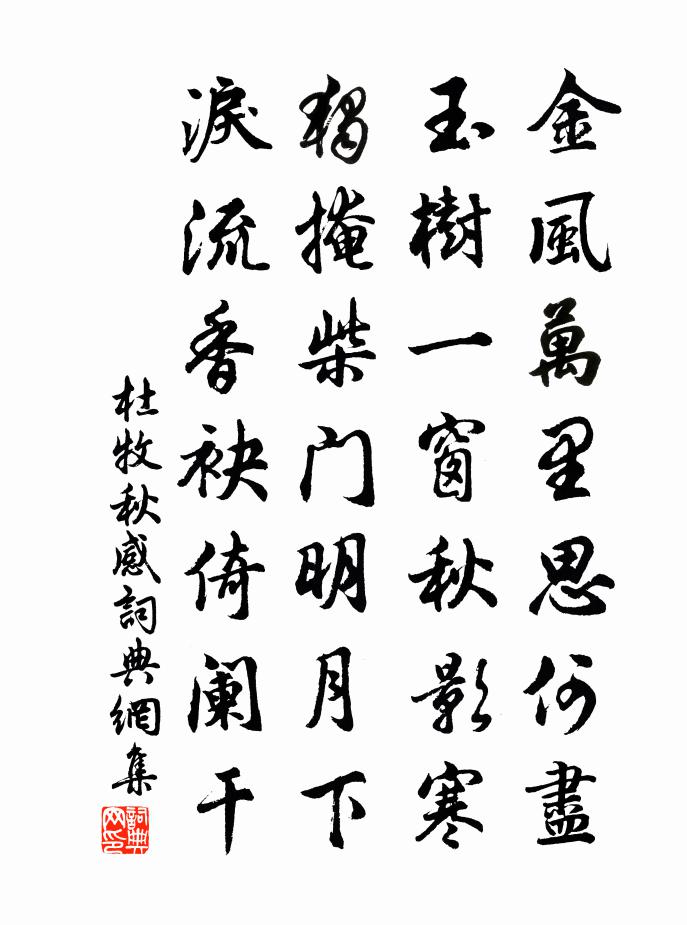 金風萬里思何盡
玉樹一窗秋影寒
獨掩柴门明月下
淚流香袂倚阑干
杜牧秋感詞典網集
詞典网印